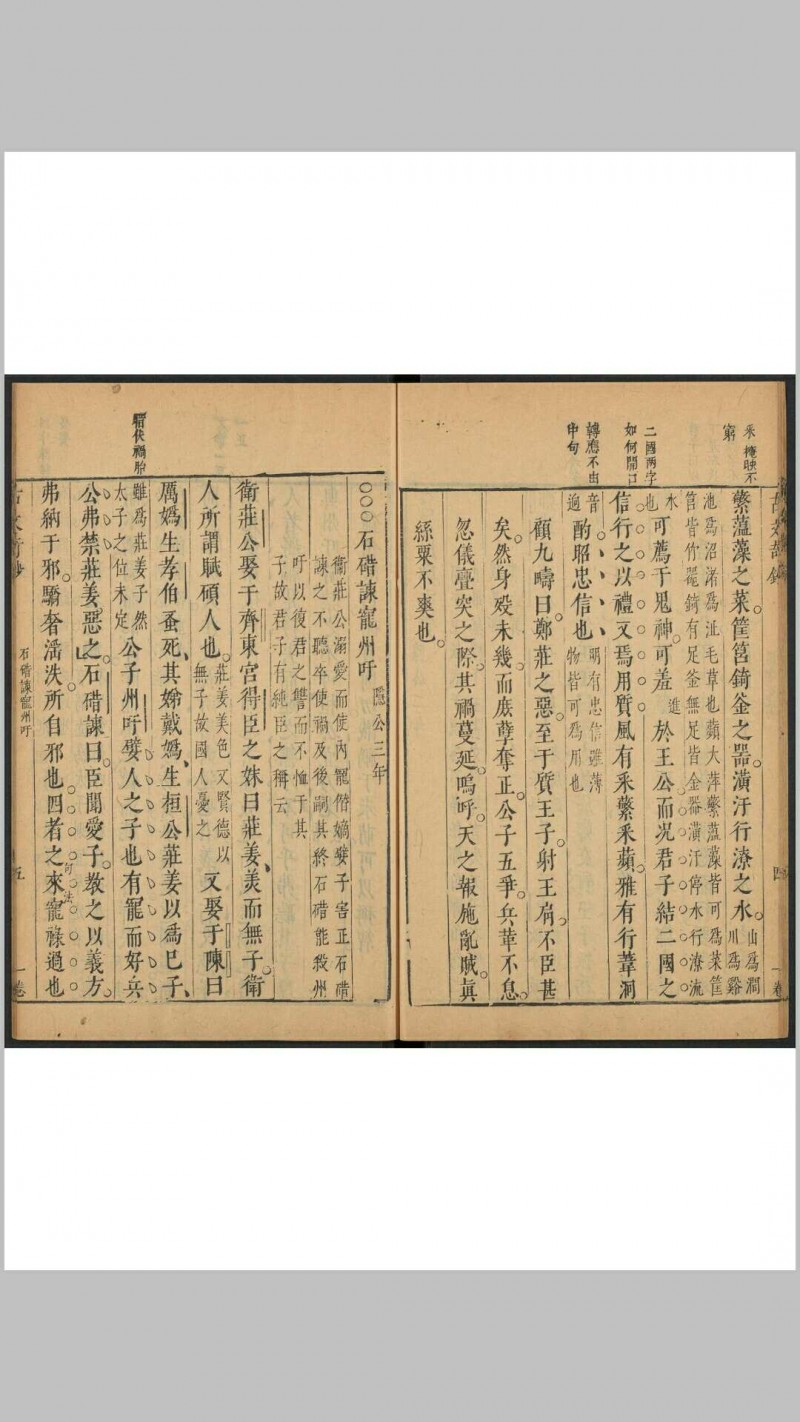 采掩映不
窮
二國两字
如何開口
轉應不由
中句
蘩薀藻之菜筐筥錡釜之噐潢汙行潦之水山爲澗川爲谿
池爲沼渚爲沚毛草也蘋大萍蘩薀藻皆可爲菜筐
筥皆竹噐錡有足釜無足皆金噐潢汙停水行潦流
水也可薦于鬼神可羞進於王公而况君子結二國之
信行之以禮又焉用質風有采蘩采蘋雅有行葦泂
音逈酌昭忠信也明有忠信雖薄物皆可爲用也
顧九疇曰鄭莊之惡至于質王子射王肩不臣甚
矣然身殁未幾而庶孽奪正公子五爭兵革不息
忽儀亹突之際其禍蔓延嗚呼天之報施亂賊眞
絲粟不爽也
四
一卷
石碏諫寵州吁 隱公三年
衞莊公溺愛而使內寵僭嫡嬖子害正石碏
諫之不聽卒使禍及後嗣其終石碏能殺州
吁以復君之讐而不恤于其
子故君子有純臣之稱云
衛莊公娶于齊東宮得臣之妹曰莊姜美而無子衛
人所謂賦碩人也莊姜美色又賢德以無子故國人憂之又娶于陳曰
厲嬀生孝伯蚤死其娣戴嬀生桓公莊姜以爲巳子
雖爲莊姜子然太子之位未定公子州吁嬖人之子也有寵而好兵
公弗禁莊姜惡之石碏諫曰臣聞愛子敎之以義方
弗納于邪驕奢滛泆所自邪也四者之來寵祿過也
句法
伏禍胎
石碏諫寵州吁
五
一卷